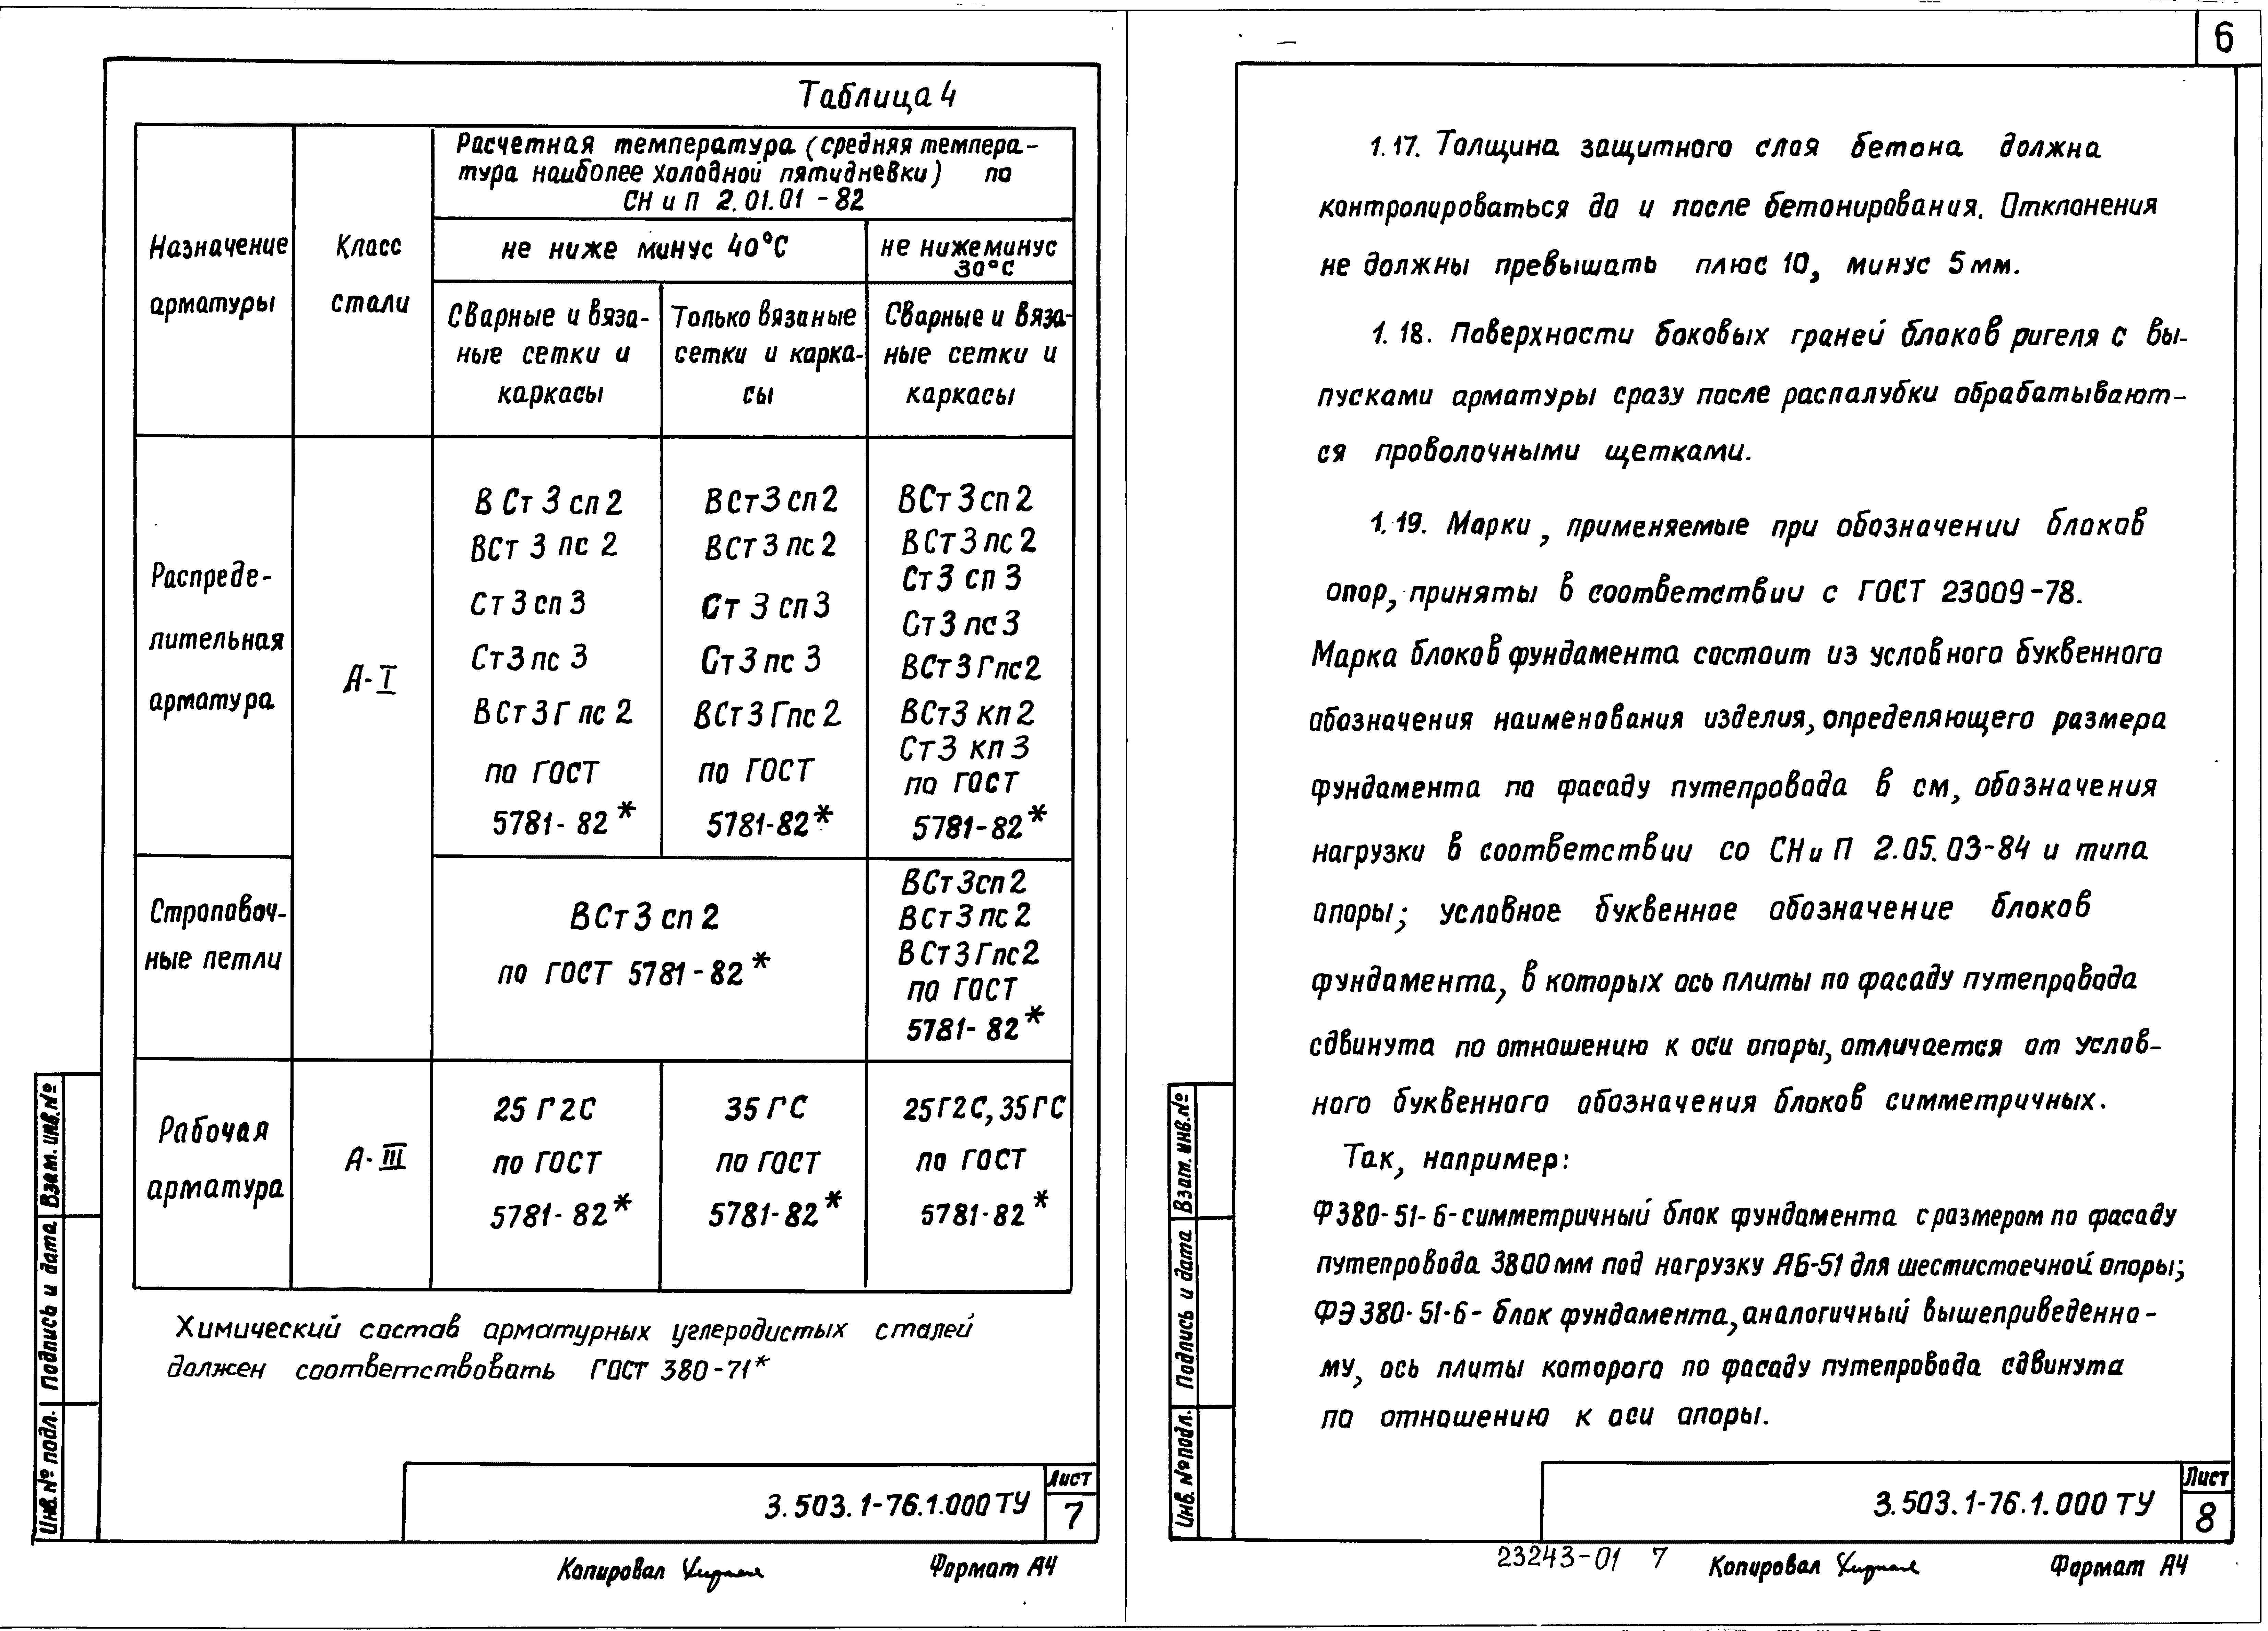 6
Таблица 4
Назначение
арматуры
Класс
стали
Расчетная температура (средняя темпера-
тура наиболее холодной пятидневки) по
СНиП 2.01.01-82
не ниже минус 40°С
не ниже минус
30°С
Сварные и вяза-
ные сетки и
каркасы
Только вязаные
сетки и карка-
сы
Сварные и вяза-
ные сетки и
каркасы
Распреде-
лительная
арматура
А-I
ВСт3сп2
ВСт3пс2
Ст3сп3
Ст3пс3
ВСт3Гпс2
по ГОСТ
5781-82*
ВСт3сп2
ВСт3пс2
Ст3сп3
Ст3пс3
ВСт3Гпс2
по ГОСТ
5781-82*
ВСт3сп2
ВСт3пс2
Ст3сп3
Ст3пс3
ВСт3Гпс2
ВСт3кп2
Ст3кп3
по ГОСТ
5781-82*
Строповоч-
ные петли
ВСт3сп2
по ГОСТ 5781-82*
ВСт3сп2
ВСт3пс2
ВСт3Гпс2
по ГОСТ
5781-82*
Рабочая
арматура
А-III
25Г2С
по ГОСТ
5781-82*
35ГС
по ГОСТ
5781-82*
25Г2С, 35ГС
по ГОСТ
5781-82*
Химический состав арматурных углеродистых сталей
должен соответствовать ГОСТ 380-71*
Инв.№ подл.
Подпись и дата
Взам. инв.№
3.503.1-76.1.000 ТУ
Лист
7
Копировал
Формат А4
1.17. Толщина защитного слоя бетона должна
контролироваться до и после бетонирования. Отклонения
не должны превышать плюс 10, минус 5 мм.
1.18. Поверхности боковых граней блоков ригеля с вы-
пусками арматуры сразу после распалубки обрабатывают-
ся проволочными щетками.
1.19. Марки, применяемые при обозначении блоков
опор, приняты в соответствии с ГОСТ 23009-78.
Марка блоков фундамента состоит из условного буквенного
обозначения наименования изделия, определяющего размера
фундамента по фасаду путепровода в см, обозначения
нагрузки в соответствии со СНиП 2.05.03-84 и типа
опоры; условное буквенное обозначение блоков
фундамента, в которых ось плиты по фасаду путепровода
сдвинута по отношению к оси опоры, отличается от услов-
ного буквенного обозначения блоков симметричных.
Так, например:
Ф380-51-6-симметричный блок фундамента с размером по фасаду
путепровода 3800 мм под нагрузку АБ-51 для шестистоечной опоры;
ФЭ380-51-6- блок фундамента, аналогичный вышеприведенно-
му, ось плиты которого по фасаду путепровода сдвинута
по отношению к оси опоры.
Инв. № подл.
Подпись и дата
Взам. инв.№
3.503.1-76.1.000 ТУ
Лист
8
23243-01 7
Копировал
Формат А4